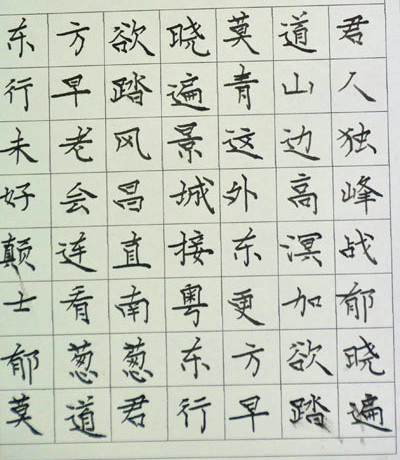 东方欲晓莫道君
行早踏遍青山人
未老风景这边独
好会昌城外高峰
颠连直接东溟战
士看南粤更加郁
郁葱葱东方欲晓
莫道君行早踏遍